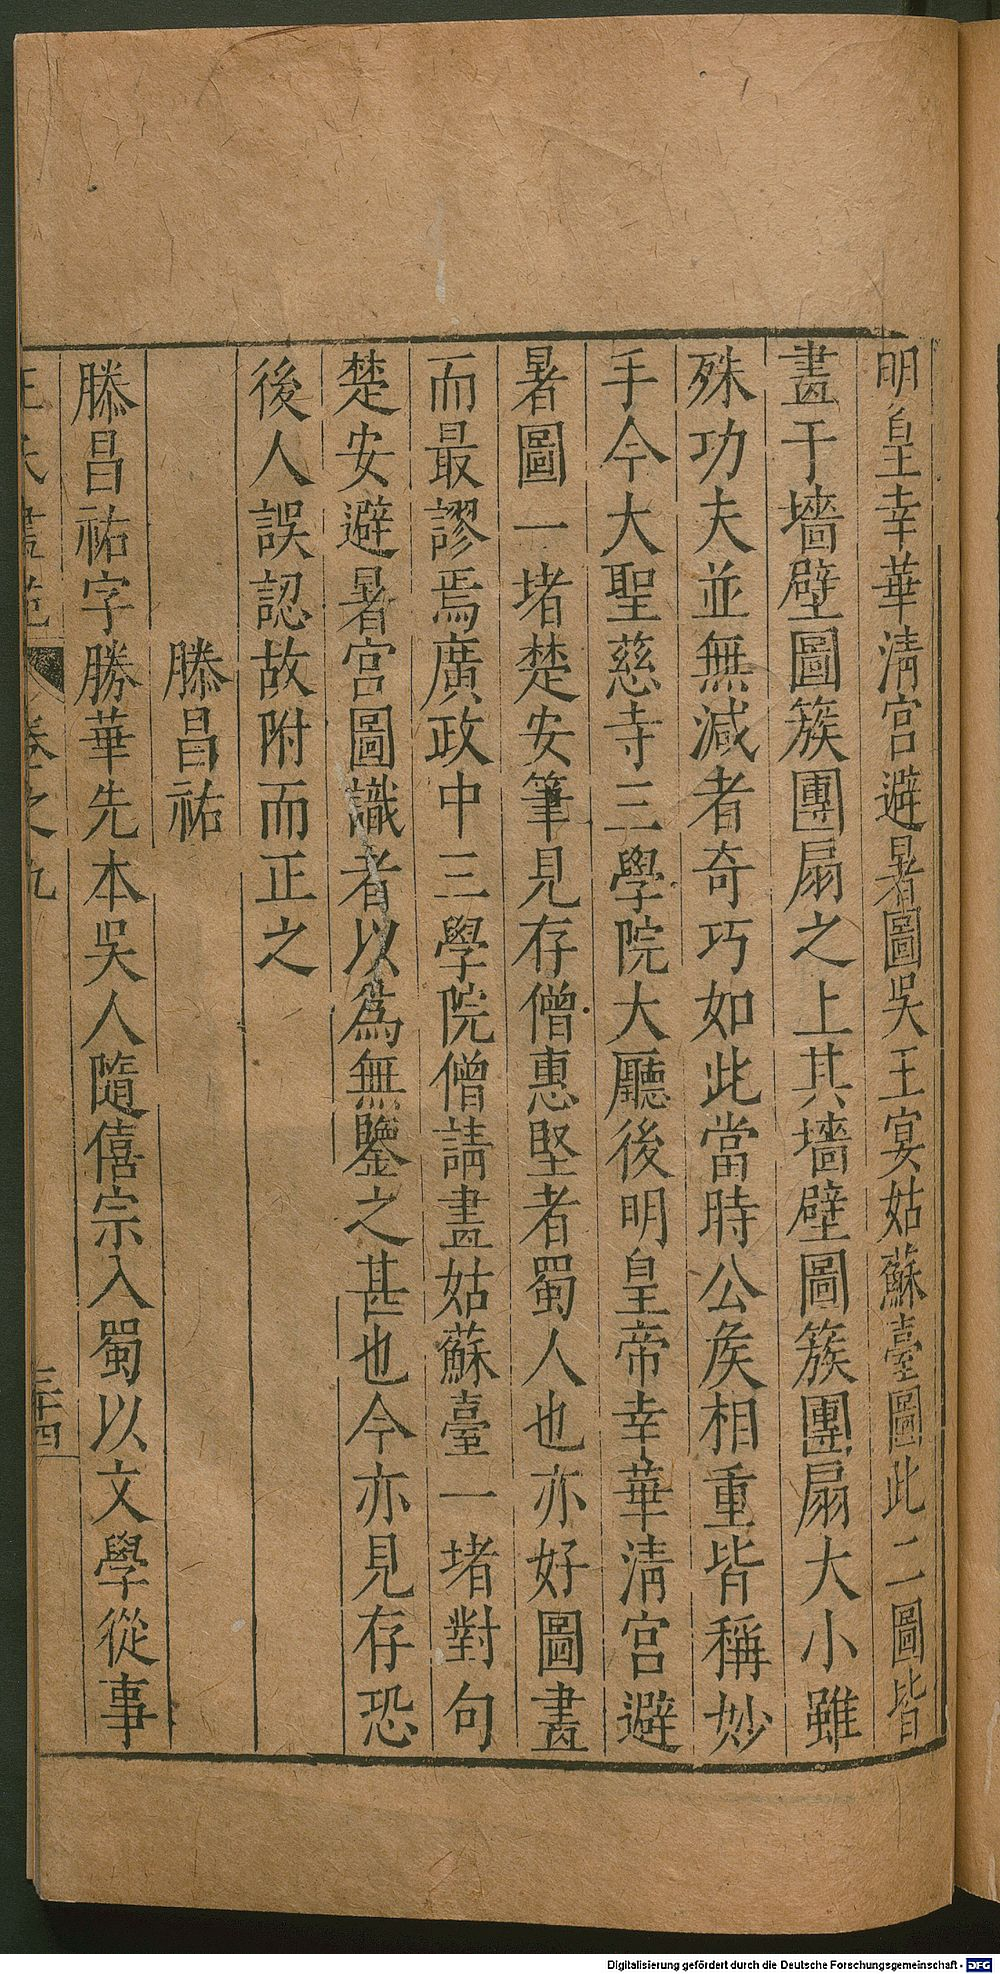 明皇幸華清宮避暑圖吳王宴姑蘇臺圖此二圖皆
畫于墻壁圖簇團扇之上其墻壁圖簇團扇大小雖
殊功夫並無減者奇巧如此當時公矦相重皆稱妙
手今大聖慈寺三學院大廳後明皇帝幸華清宮避
暑圖一堵楚安筆見存僧惠堅者蜀人也亦好圖畫
而最謬焉廣政中三學院僧請畫姑蘇臺一堵對句
楚安避暑宮圖識者以為無鑒之甚也今亦見存恐
後人誤認故附而正之
滕昌祐
滕昌祐字勝華先本吳人隨僖宗入蜀以文學從事
王氏畫苑 卷之九 三十四
Digitalisierung gefördert durch die Deutsche Forschungsgemeinschaft - DFG